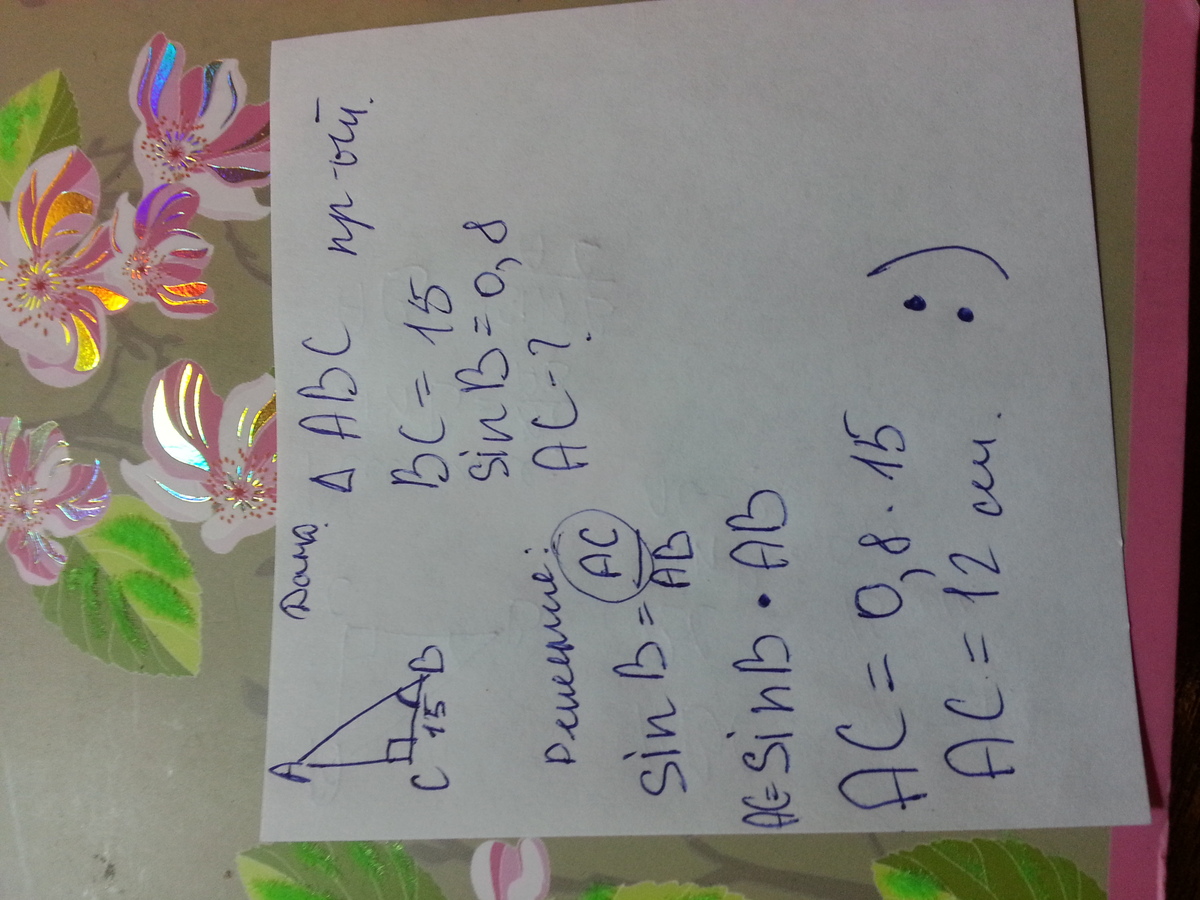 Дано: Δ ABC пр-ый.
BC = 15
Sin B = 0,8
AC - ?
A
C
15
B
Решение:
Sin B = AC / AB
AC = Sin B • AB
AC = 0,8 · 15
AC = 12 см. :)